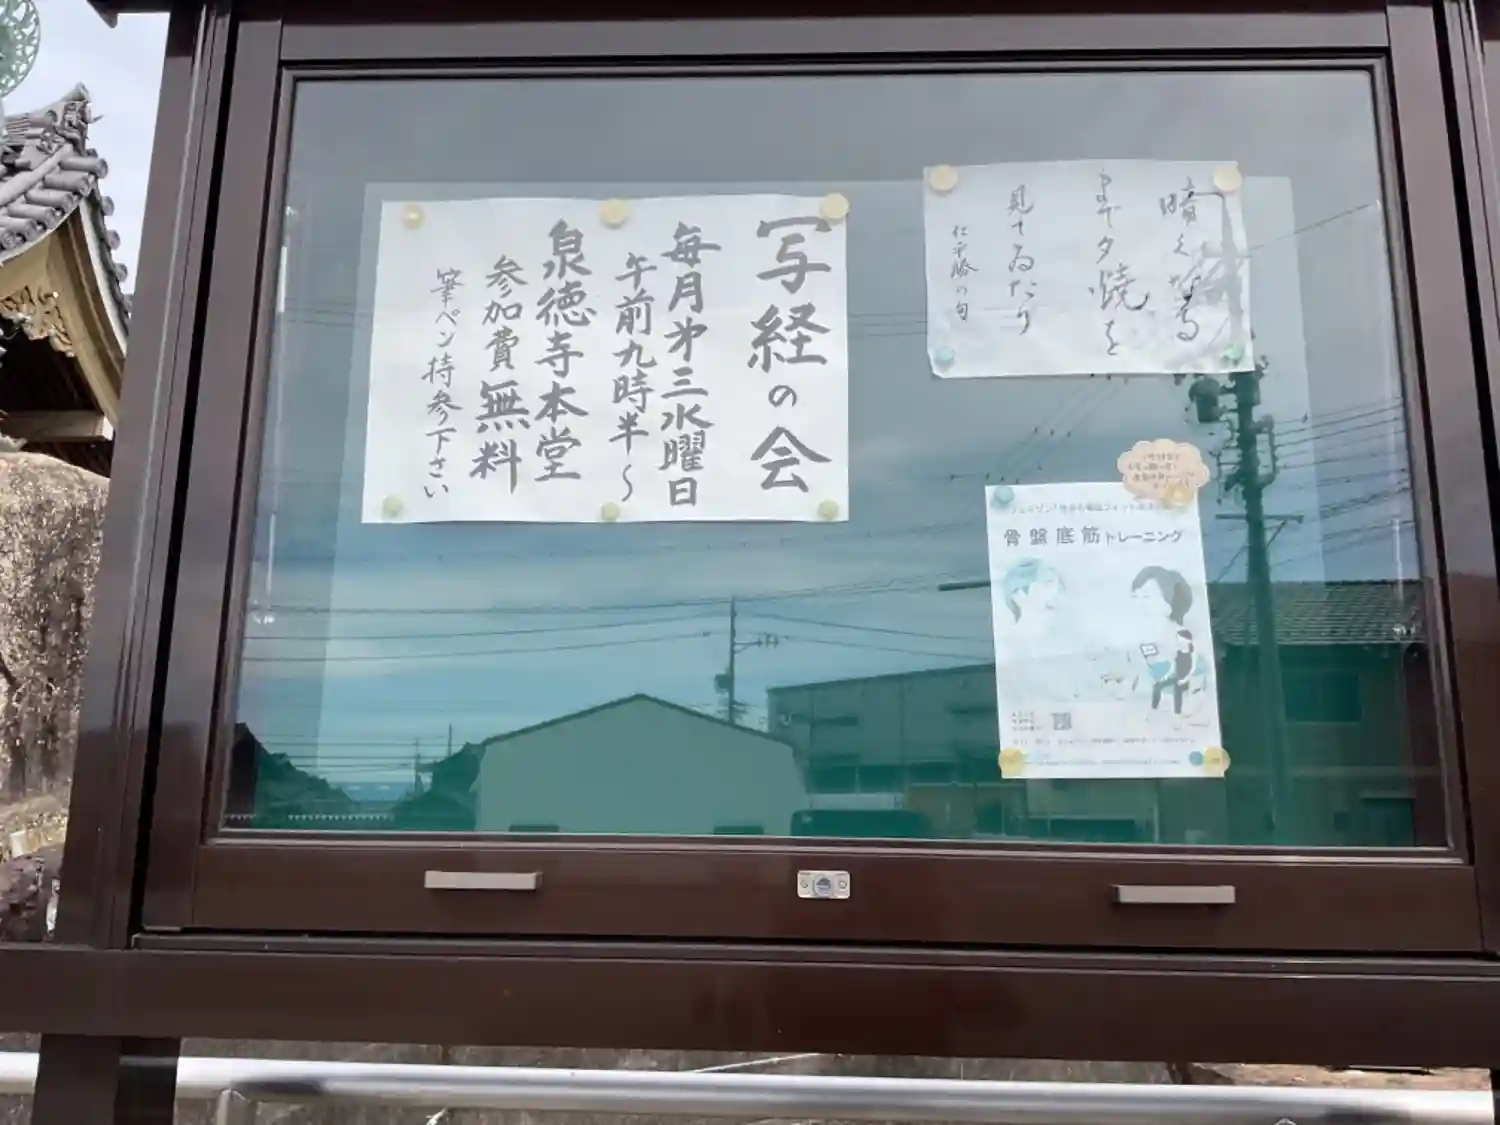 写経の会
毎月第三水曜日
午前九時半〜
泉徳寺本堂
参加費無料
筆ペン持参下さい
暗くなる
まで夕焼を
見てゐたり
仁平勝の句
骨盤底筋トレーニング